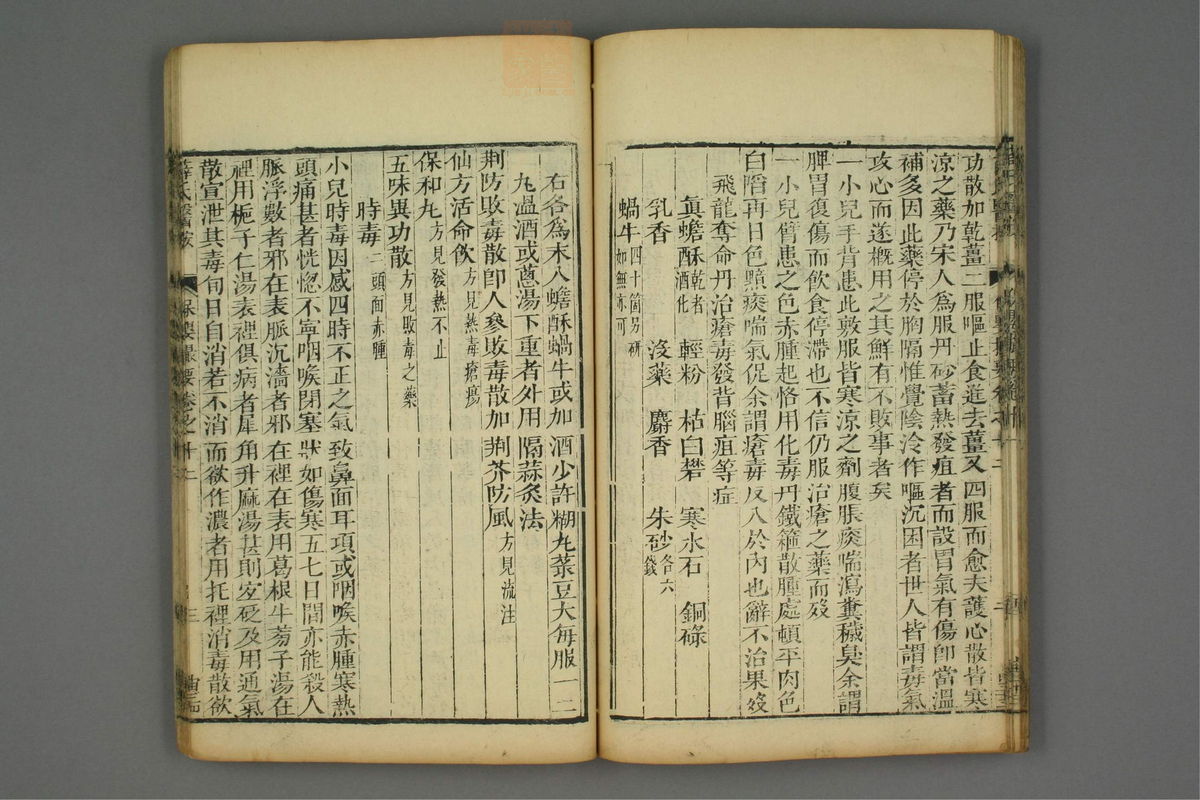 功散加乾薑二服嘔止食進去薑又四服而愈夫護心散皆寒
涼之藥乃宋人為服丹砂蓄熱發疽者而設胃氣有傷卽當溫
補多因此藥停於胸膈惟覺陰冷作嘔沉困者世人皆謂毒氣
攻心而遂概用之其鮮有不敗事者矣
一小兒手背患此敷服皆寒涼之劑腹脹痰喘瀉糞穢臭余謂
脾胃復傷而飲食停滯也不信仍服治瘡之藥而歿
一小兒臂患之色赤腫起恪用化毒丹鐵箍散腫處頓平肉色
白𣆶再日色黯痰喘氣促余謂瘡毒反入於內也辭不治果歿
飛龍奪命丹治瘡毒發背腦疽等症
眞蟾酥乾者酒化 輕粉 枯白礬 寒水石 銅碌
乳香 沒藥 麝香 朱砂各六錢
蝸牛四十箇另研如無亦可
右各為末入蟾酥蝸牛或加酒少許糊丸菉豆大每服一二
丸溫酒或蔥湯下重者外用隔蒜灸法
荆防敗毒散卽人參敗毒散加荆芥防風方見流注
仙方活命飲方見熱毒瘡瘍
保和丸方見發熱不止
五味異功散方見敗毒之藥
時毒二頭面赤腫
小兒時毒因感四時不正之氣致鼻面耳項或咽喉赤腫寒熱
頭痛甚者恍惚不寧咽喉閉塞狀如傷寒五七日間亦能殺人
脈浮數者邪在表脈沉濇者邪在裡在表用葛根牛蒡子湯在
裡用梔子仁湯表裡俱病者犀角升麻湯甚則宜砭及用通氣
散宣泄其毒旬日自消若不消而欲作濃者用托裡消毒散欲
薛氏醫按 保嬰撮要卷之十二 三